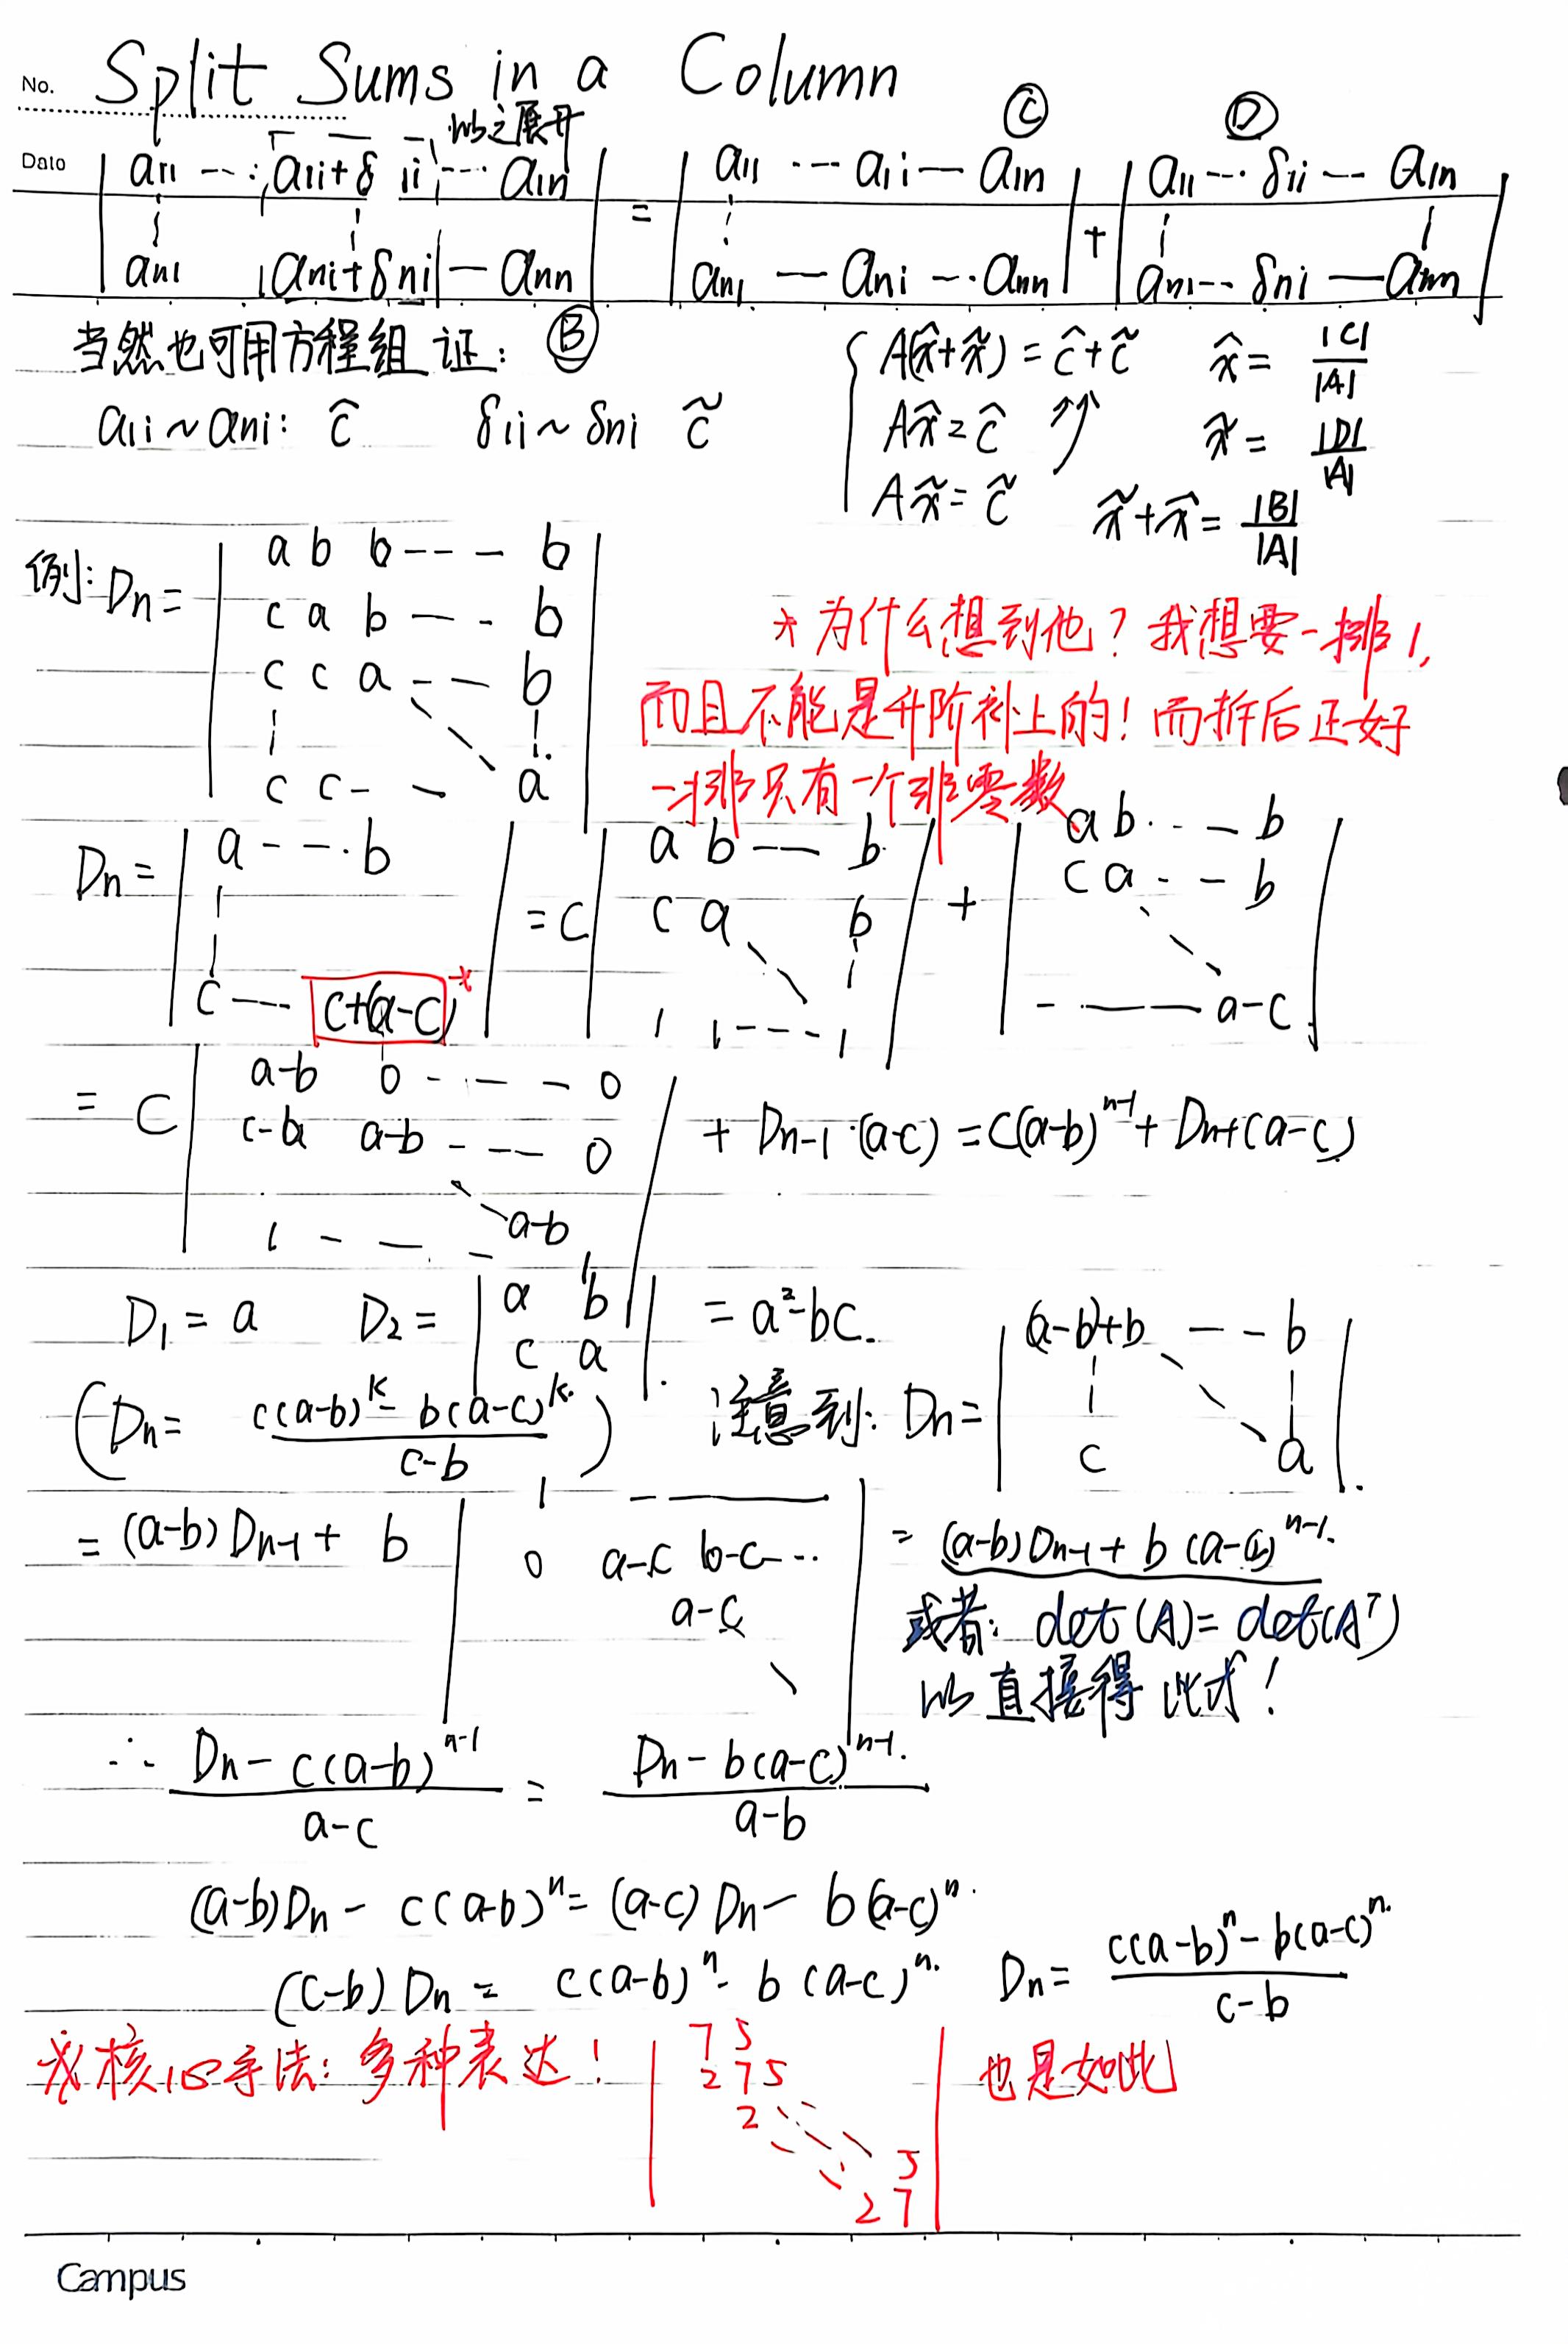 No. Split Sums in a Column
以之展开
Date
| a11 ... a1i+δ1i ... a1n | = | a11 ... a1i — a1n | + | a11 ... δ1i — a1n |
| an1 ani+δni — ann | | an1 — ani ... ann | | an1 ... δni — ann |
Ⓒ Ⓓ
当然也可用方程组证: Ⓑ
a1i ~ ani: ĉ δ1i ~ δni c̃
{ A(x̂+x̃) = ĉ+c̃ x̂ = |C|/|A|
Ax̂ = ĉ x̃ = |D|/|A|
Ax̃ = c̃ x̃+x̂ = |B|/|A|
例: Dn =
| a b b --- b |
| c a b --- b |
| c c a --- b |
| c c - - a |
* 为什么想到他? 我想要一排1,
而且不能是升阶补上的! 而拆后正好
一排只有一个非零数
Dn = | a --- b | = C | a b — b | + | a b ... — b |
| c a b | | c a - - b |
| c --- c+(a-c) |* | 1 1 --- 1 | | - —— a-c |
= C | a-b 0 - - - 0 |
| c-b a-b - -- 0 |
| a-b |
| 1 - - - 1 |
+ Dn-1·(a-c) = c(a-b)^n-1 + Dn-1(a-c)
D1 = a D2 = | a b | = a²-bc.
| c a |
(Dn = (c(a-b)^k - b(a-c)^k)/(c-b))
注意到: Dn = | (a-b)+b -- b |
| c a |.
= (a-b)Dn-1 + b | 1 —— |
| 0 a-c b-c ... |
| a-c |
= (a-b)Dn-1 + b(a-c)^n-1.
或者: det(A) = det(Aᵀ)
以直接得此式!
∴ (Dn - c(a-b)^n-1)/(a-c) = (Dn - b(a-c)^n-1)/(a-b)
(a-b)Dn - c(a-b)^n = (a-c)Dn - b(a-c)^n.
(c-b)Dn = c(a-b)^n - b(a-c)^n. Dn = (c(a-b)^n - b(a-c)^n)/(c-b)
核心手法: 多种表达!
| 7 5 |
| 2 7 5 |
| 2 |
| 5 |
| 2 7 |
也是如此
Campus